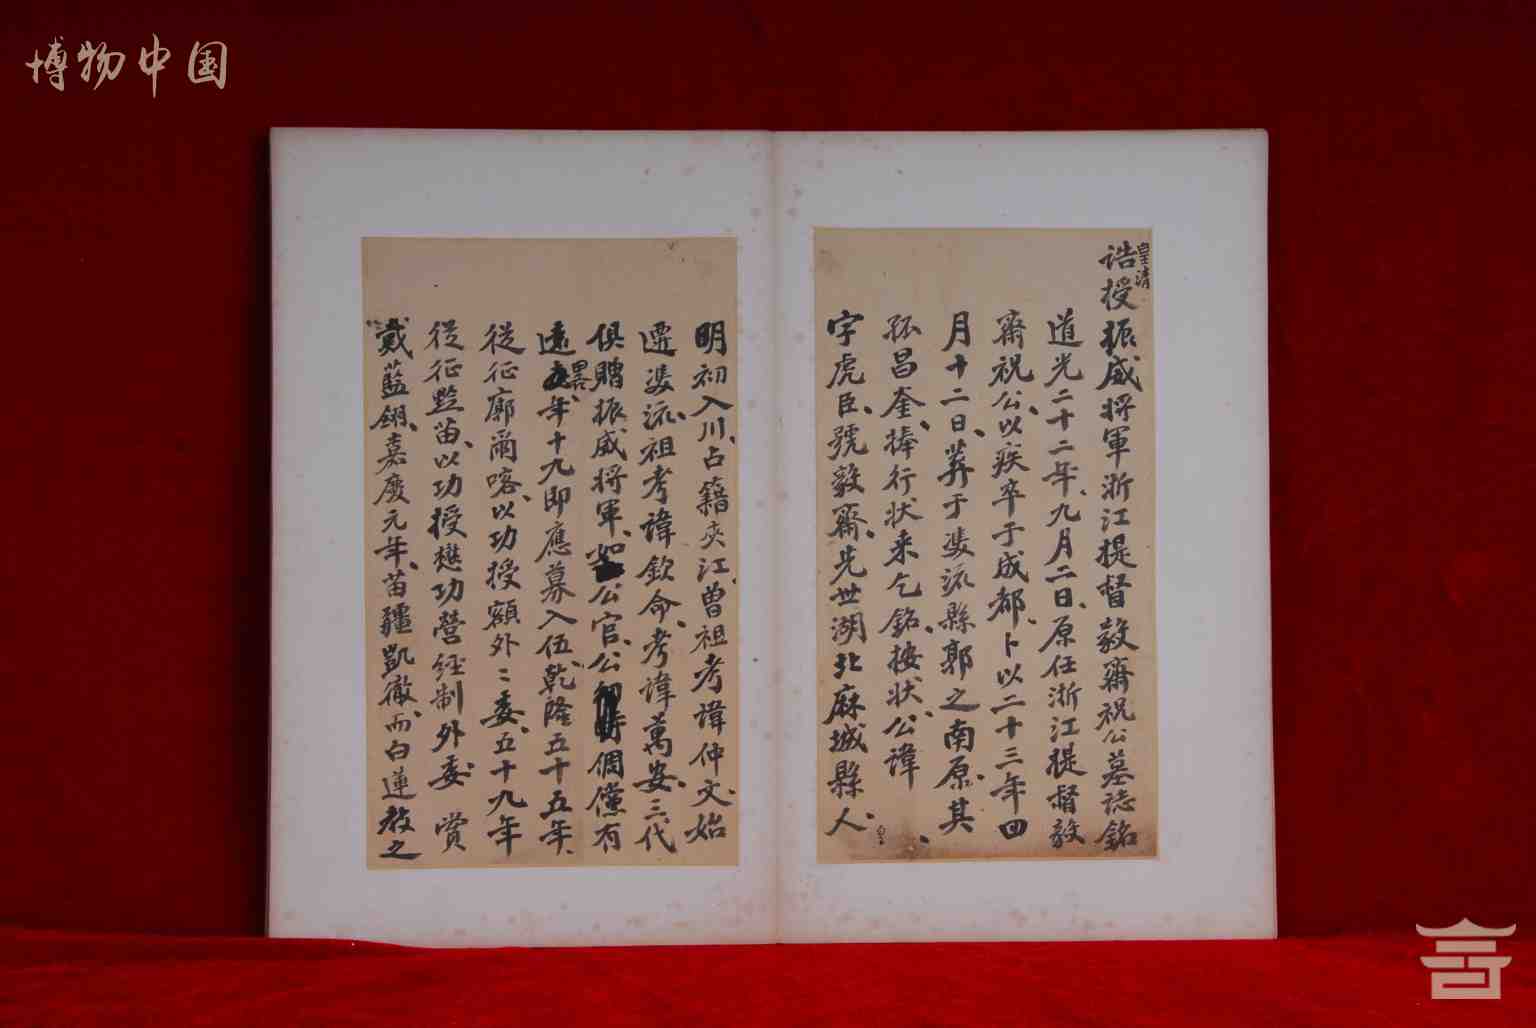 博物中国
皇清
誥授振威將軍浙江提督毅齋祝公墓誌銘
道光二十二年九月二日原任浙江提督毅
齋祝公以疾卒于成都卜以二十三年四
月十二日葬于雙流縣郭之南原其
孤昌奎捧行狀来乞銘按狀公諱
字虎臣號毅齋先世湖北麻城縣人
明初入川占籍夾江曾祖考諱仲文始
遷雙流祖考諱欽命考諱萬安三代
俱贈振威將軍如公官公倜儻有
遠畧年十九即應募入伍乾隆五十五年
從征廓爾喀以功授額外〻委五十九年
從征黔苗以功授懋功營經制外委 賞
戴藍翎嘉慶元年苗疆凱徹而白蓮教之